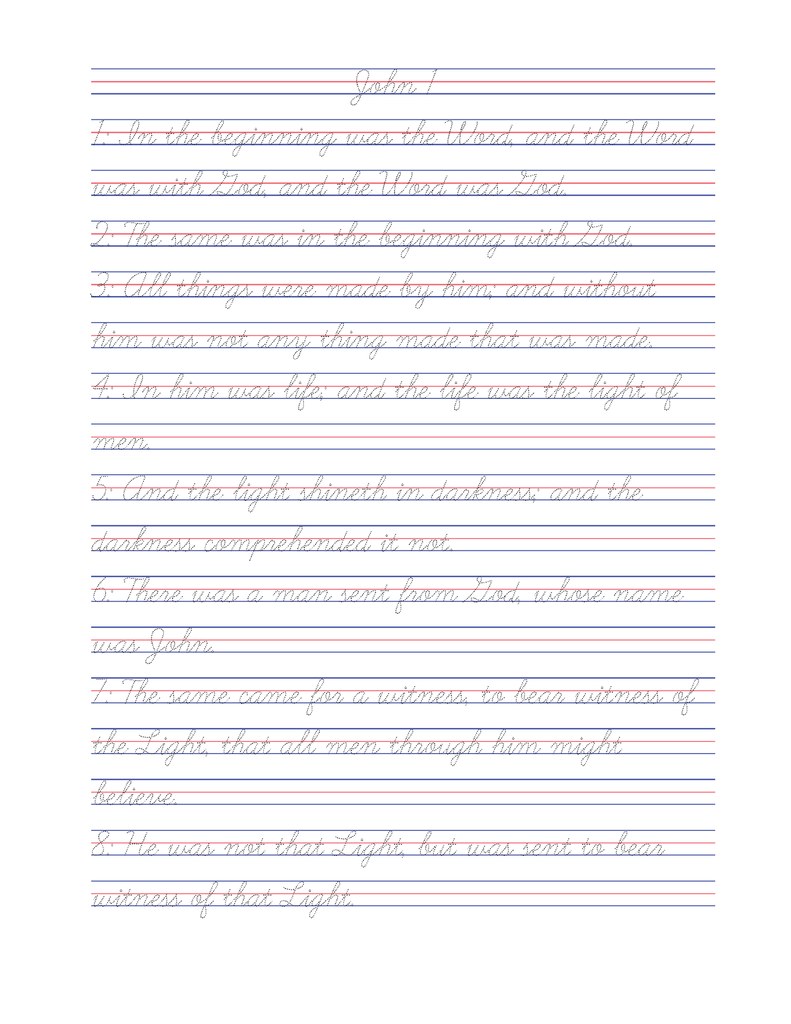 John 1
1: In the beginning was the Word, and the Word
was with God, and the Word was God.
2: The same was in the beginning with God.
3: All things were made by him; and without
him was not any thing made that was made.
4: In him was life; and the life was the light of
men.
5: And the light shineth in darkness; and the
darkness comprehended it not.
6: There was a man sent from God, whose name
was John.
7: The same came for a witness, to bear witness of
the Light, that all men through him might
believe.
8: He was not that Light, but was sent to bear
witness of that Light.